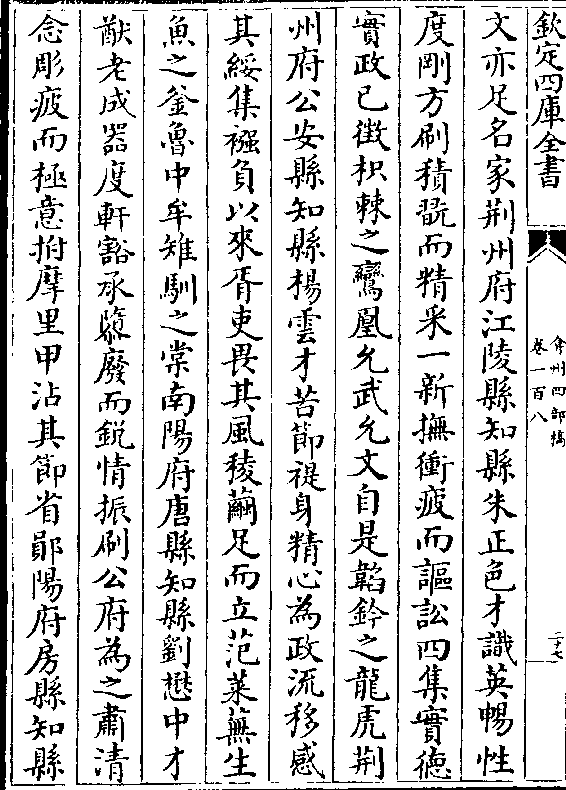 欽定四庫全書
弇州四部稿
卷一百八
二十七
文亦足名家荆州府江陵縣知縣朱正色才識英暢性
度剛方刷積翫而精采一新撫衝疲而謳訟四集實德
實政已徴枳棘之鸞凰允武允文自是韜鈐之龍虎荆
州府公安縣知縣楊雲才苦節禔身精心為政流移感
其綏集襁負以來胥吏畏其風稜繭足而立范萊蕪生
魚之釜魯中牟雉馴之棠南陽府唐縣知縣劉懋中才
猷老成器度軒豁承隳廢而鋭情振刷公府為之肅清
念彫疲而極意拊摩里甲沾其節省鄖陽府房縣知縣